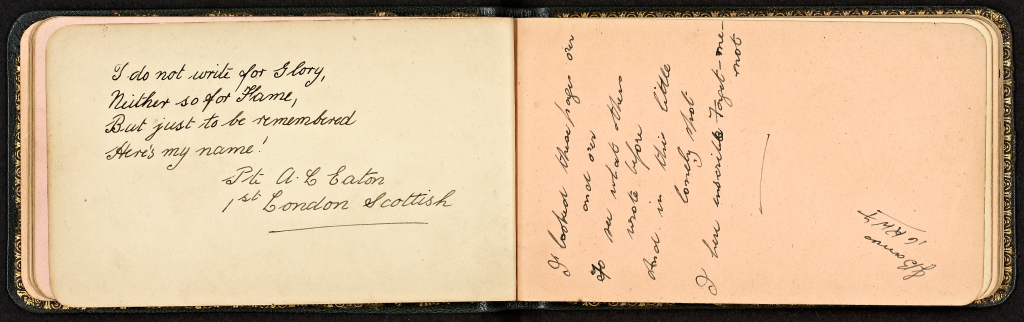 I do not write for Glory,
Neither so for Flame,
But just to be remembered
Here's my name!
Pte A. L Eaton
1st London Scottish
I looked these pages over
and over
To see what others
wrote before
And in this little
lonely spot
I here inscribe Forget-me-
not
16 RWF